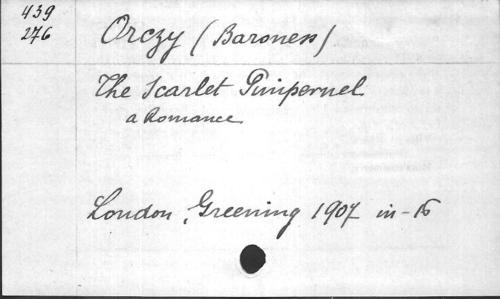 439
276
Orczy (Baroness)
The Scarlet Pimpernel
a Romance
London, Greening 1907 in-16